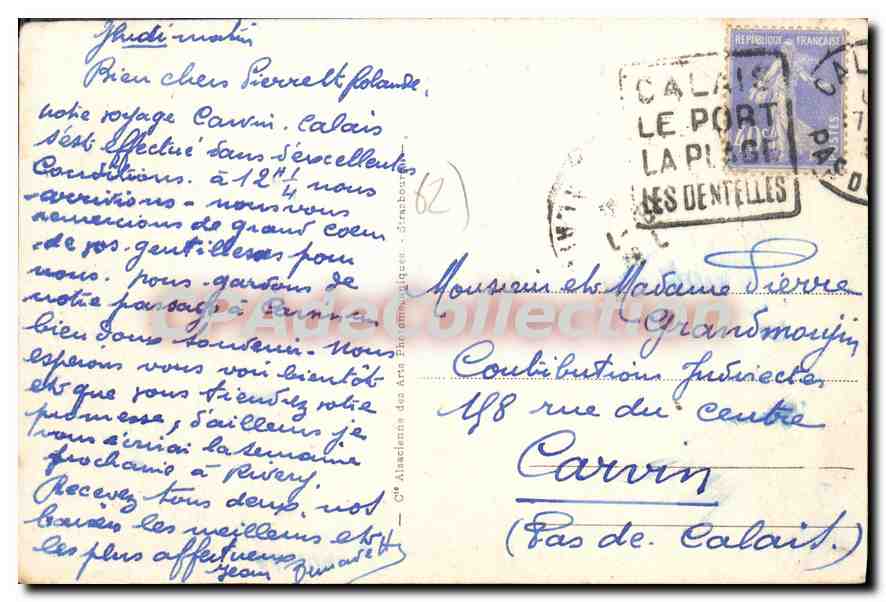 Jeudi matin
Bien chers Pierre et Rolande,
notre voyage Carvin-Calais
s'est effectué dans d'excellentes
conditions. à 12 H 1/4 nous
arrivions - nous vous
remercions de grand coeur
de vos gentillesses pour
nous. nous gardons de
notre passage à Carvin un
bien doux souvenir - Nous
espérons vous voir bientôt
et que vous tiendrez votre
promesse, d'ailleurs je
vous écrirai la semaine
prochaine à Rivery.
Recevez tous deux, nos
baisers les meilleurs et
les plus affectueux
Jean
62)
— Cie Alsacienne des Arts Photomécaniques. - Strasbourg —
REPUBLIQUE FRANÇAISE
40c
POSTES
CALAIS
LE PORT
LA PLAGE
LES DENTELLES
CALAIS
PAS DE
Monsieur et Madame Pierre
Grandmougin
Contributions Indirectes
158 rue du Centre
Carvin
(Pas de Calais.)
CPADeCollection